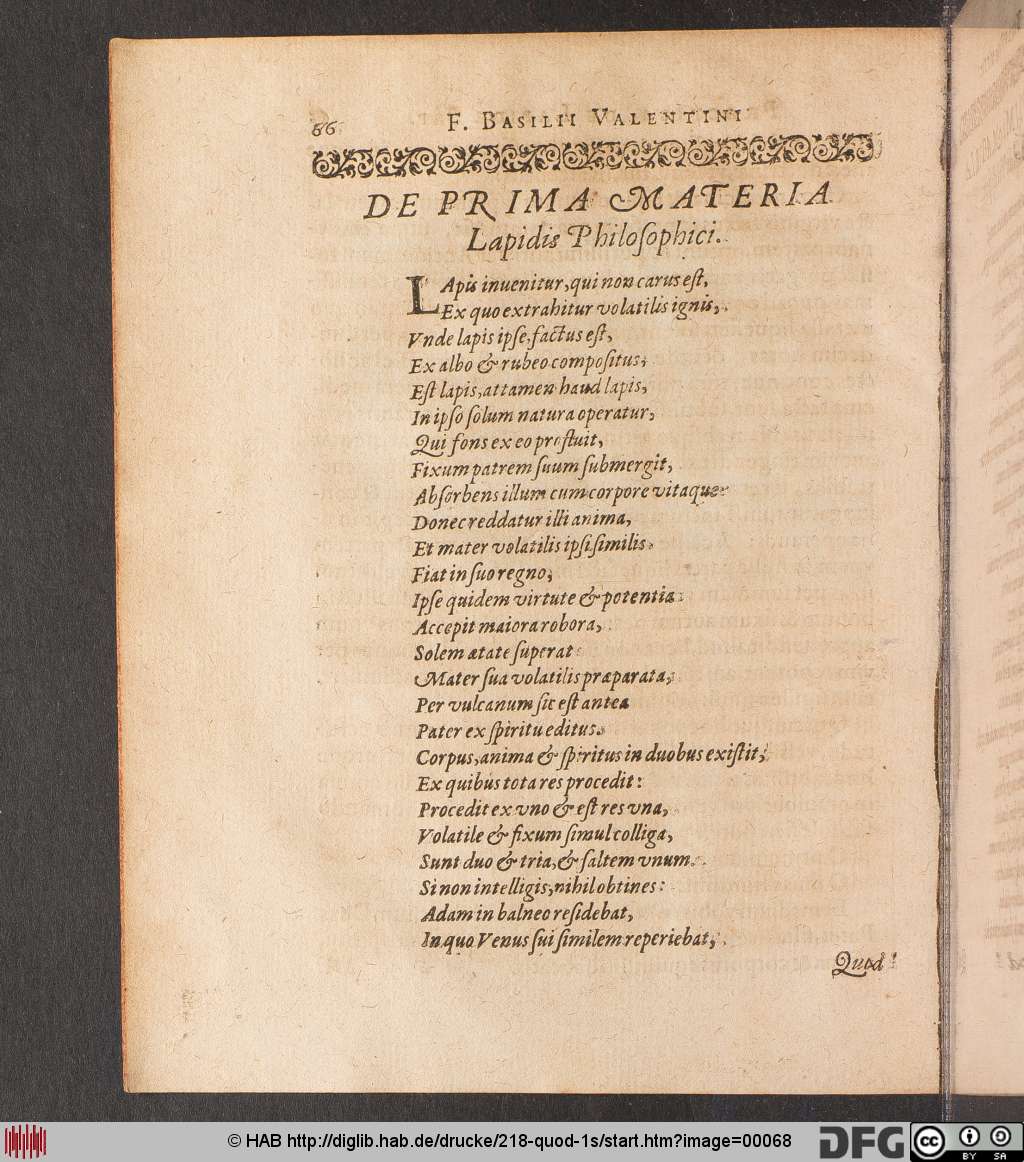 66 F. BASILII VALENTINI
DE PRIMA MATERIA
Lapidis Philoſophici.
LApis inuenitur, qui non carus eſt,
Ex quo extrahitur volatilis ignis,
Vnde lapis ipſe, factus eſt,
Ex albo & rubeo compoſitus,
Eſt lapis, attamen haud lapis,
In ipſo ſolum natura operatur,
Qui fons ex eo profluit,
Fixum patrem ſuum ſubmergit,
Abſorbens illum cum corpore vitaque
Donec reddatur illi anima,
Et mater volatilis ipſi ſimilis.
Fiat in ſuo regno,
Ipſe quidem virtute & potentia
Accepit maiora robora,
Solem ætate ſuperat
Mater ſua volatilis præparata,
Per vulcanum ſic eſt antea
Pater ex ſpiritu editus.
Corpus, anima & ſpiritus in duobus exiſtit,
Ex quibus tota res procedit:
Procedit ex vno & eſt res vna,
Volatile & fixum ſimul colliga,
Sunt duo & tria, & ſaltem vnum.
Si non intelligis, nihil obtines:
Adam in balneo reſidebat,
In quo Venus ſui ſimilem reperiebat,
Quod
© HAB http://diglib.hab.de/drucke/218-quod-1s/start.htm?image=00068
DFG
cc
BY SA